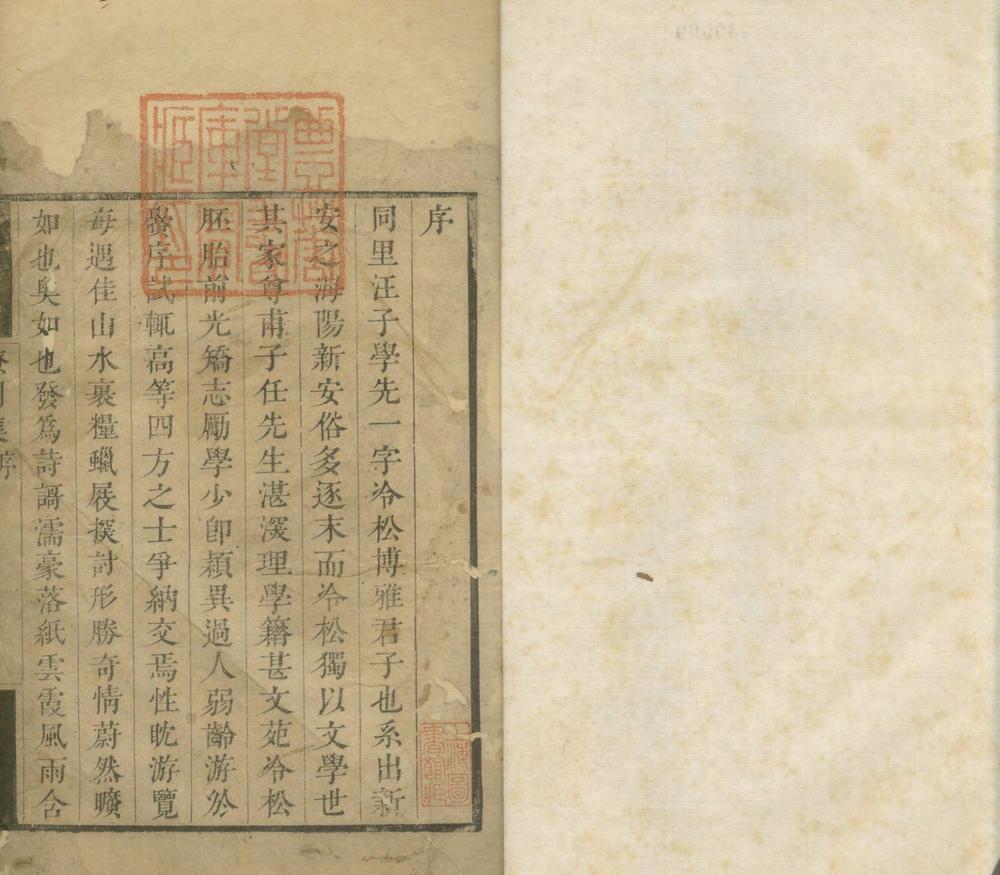 序
同里汪子學先一字冷松博雅君子也系出新
安之海陽新安俗多逐末而冷松獨以文學世
其家尊甫子任先生湛深理學籍甚文苑冷松
胚胎前光矯志勵學少即穎異過人弱齡游於
黌序試輒高等四方之士爭納交焉性眈游覽
每遇佳山水裹糧蠟屐探討形勝奇情蔚然曠
如也奥如也發爲詩謌濡豪落紙雲霞風雨含
集序
上海圖書館藏